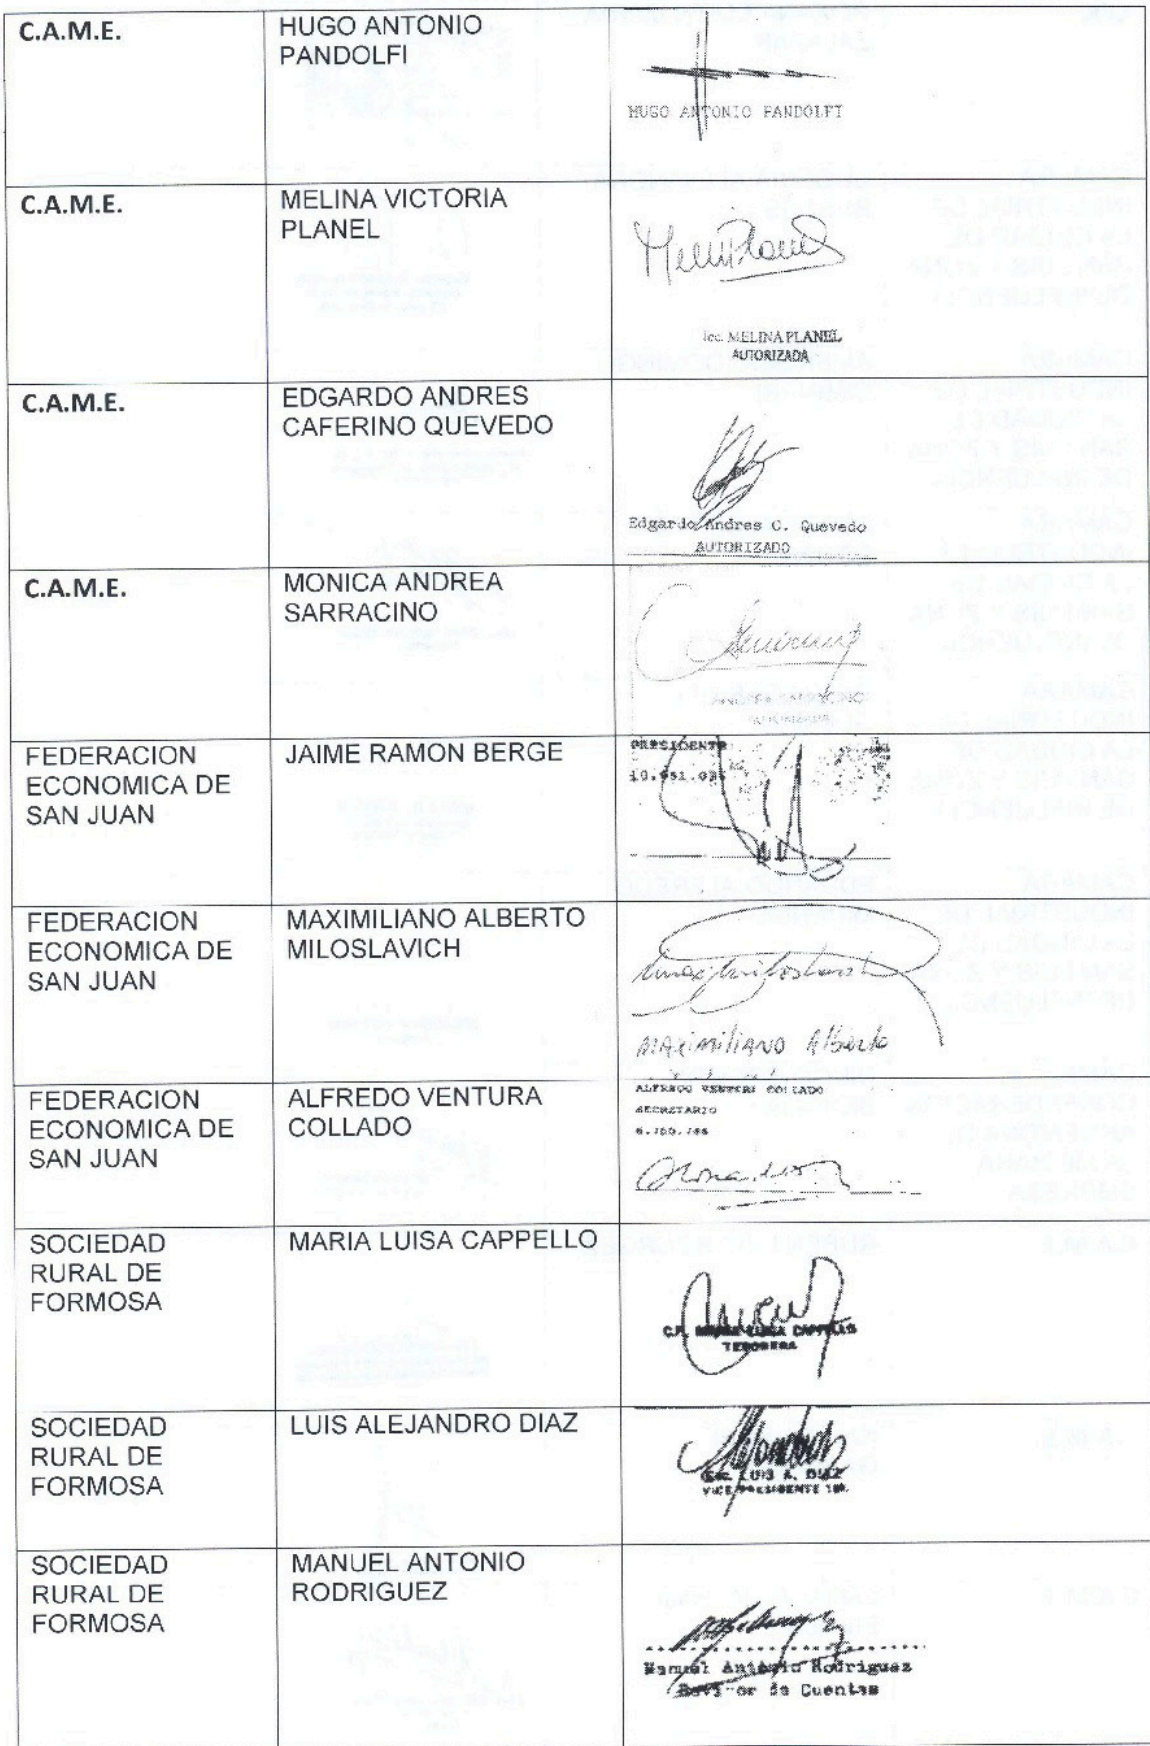 C.A.M.E.
HUGO ANTONIO
PANDOLFI
HUGO ANTONIO PANDOLFI
C.A.M.E.
MELINA VICTORIA
PLANEL
lic. MELINA PLANEL
AUTORIZADA
C.A.M.E.
EDGARDO ANDRES
CAFERINO QUEVEDO
Edgardo Andres C. Quevedo
AUTORIZADO
C.A.M.E.
MONICA ANDREA
SARRACINO
FEDERACION
ECONOMICA DE
SAN JUAN
JAIME RAMON BERGE
PRESIDENTE
FEDERACION
ECONOMICA DE
SAN JUAN
MAXIMILIANO ALBERTO
MILOSLAVICH
MAXIMILIANO Alberto
FEDERACION
ECONOMICA DE
SAN JUAN
ALFREDO VENTURA
COLLADO
ALFREDO COLLADO
SECRETARIO
SOCIEDAD
RURAL DE
FORMOSA
MARIA LUISA CAPPELLO
TESORERA
SOCIEDAD
RURAL DE
FORMOSA
LUIS ALEJANDRO DIAZ
LUIS A. DIAZ
VICE PRESIDENTE
SOCIEDAD
RURAL DE
FORMOSA
MANUEL ANTONIO
RODRIGUEZ
Manuel Antonio Rodriguez
Revisor de Cuentas